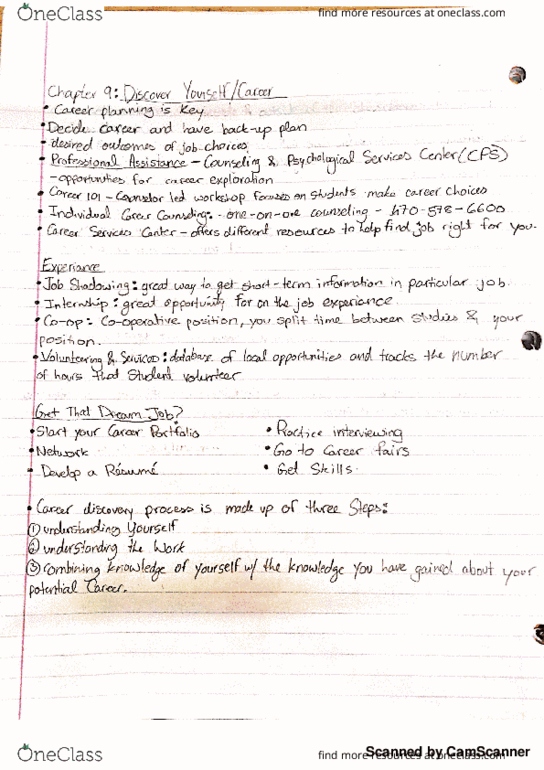 OneClass
find more resources at oneclass.com
Chapter 9: Discover Yourself/Career
• Career planning is key
• Decide career and have back-up plan
• desired outcomes of job choices
• Professional Assistance - Counseling & Psychological Services Center (CPS)
- opportunities for career exploration
• Career 101 - Counselor led workshop focuses on students make career choices
• Individual Career Counseling: - one-on-one counseling - 470-578-6600
• Career Services Center - offers different resources to help find job right for you.
Experience
• Job Shadowing: great way to get short-term information in particular job.
• Internship: great opportunity for on the job experience.
• Co-op: Co-operative position, you split time between studies & your
position.
• Volunteering & Services: database of local opportunities and tracks the number
of hours that student volunteer
Get That Dream Job?
• Start your Career Portfolio
• Practice interviewing
• Network
• Go to Career fairs
• Develop a Résumé
• Get Skills
• Career discovery process is made up of three Steps:
① understanding yourself
② understanding the Work
③ combining knowledge of yourself w/ the knowledge you have gained about your
potential Career.
OneClass
find more resources at oneclass.com
Scanned by CamScanner